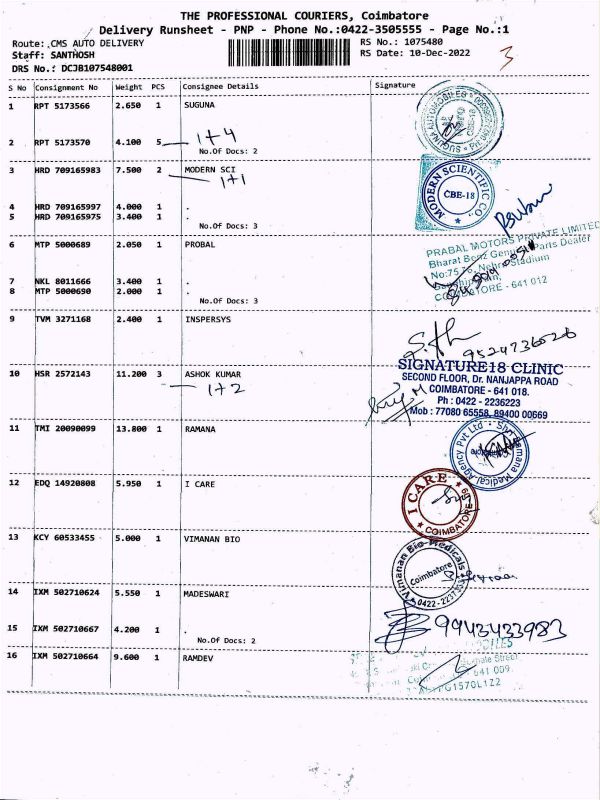 THE PROFESSIONAL COURIERS, Coimbatore
Delivery Runsheet - PNP - Phone No.:0422-3505555 - Page No.:1
Route: CMS AUTO DELIVERY RS No.: 1075480
Staff: SANTHOSH RS Date: 10-Dec-2022
DRS No.: DCJB107548001
3
S No Consignment No Weight PCS Consignee Details Signature
1 RPT 5173566 2.650 1 SUGUNA
2 RPT 5173570 4.100 5 1+4
No.Of Docs: 2
SUGUNA AUTOMOBILES
CBE-18
3 HRD 709165983 7.500 2 MODERN SCI
1+1
4 HRD 709165997 4.000 1 .
5 HRD 709165975 3.400 1 .
No.Of Docs: 3
MODERN SCIENTIFIC CO.,
CBE-18
6 MTP 5000689 2.050 1 PROBAL
7 NKL 8011666 3.400 1 .
8 MTP 5000690 2.000 1 .
No.Of Docs: 3
PRABAL MOTORS PRIVATE LIMITED
Bharat Benz Genuine Parts Dealer
Nehru Stadium
COIMBATORE - 641 012
9 TVM 3271168 2.400 1 INSPERSYS
10 HSR 2572143 11.200 3 ASHOK KUMAR
1+2
SIGNATURE18 CLINIC
SECOND FLOOR, Dr. NANJAPPA ROAD
COIMBATORE - 641 018.
Ph : 0422 - 2236223
Mob : 77080 65558, 89400 00669
11 TMI 20090099 13.800 1 RAMANA
Ramana Medical Agency Pvt Ltd
12 EDQ 14920808 5.950 1 I CARE
I CARE
COIMBATORE
13 KCY 60533455 5.000 1 VIMANAN BIO
Vimanan Bio-Medicals
Coimbatore
14 IXM 502710624 5.550 1 MADESWARI
15 IXM 502710667 4.200 1 .
No.Of Docs: 2
9943433983
16 IXM 502710664 9.600 1 RAMDEV
641 009.